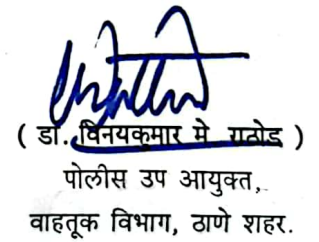 ( डॉ. विनयकुमार मे राठोड )
पोलीस उप आयुक्त,
वाहतूक विभाग, ठाणे शहर.